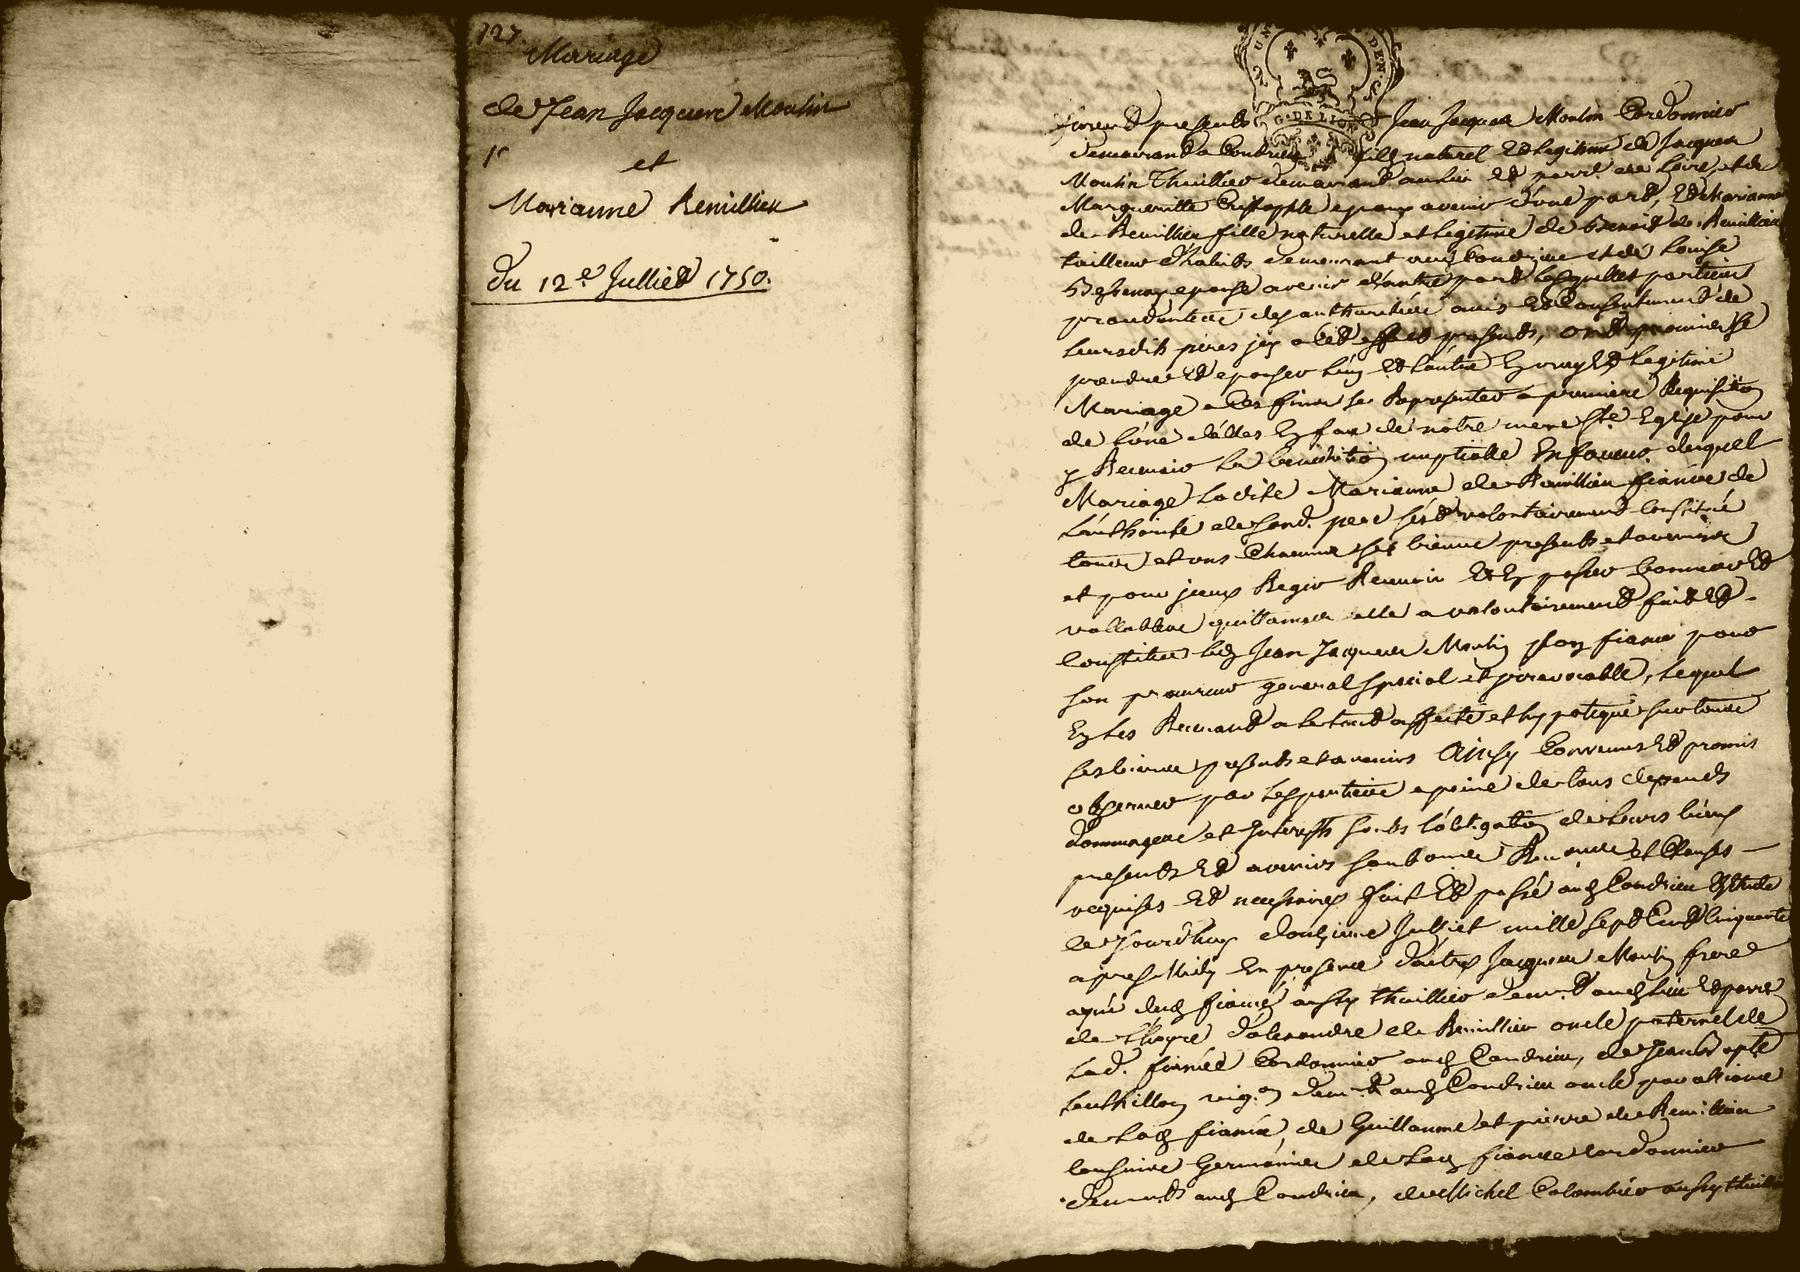 127.
Mariage
de Jean Jacques Moulin
et
Marianne Remillieu
du 12.e Julliet 1750.
G. DE LION
furent presents Jean Jacques Moulin Cordonnier
demeurant a Condrieu fils naturel et legitime de Jacques
Moulin Thuillier demeurant au lieu et parr. de Loire, et de
Margueritte epoux avenir d'une part, et Marianne
de Remillieu fille naturelle et legitime de Benoit de Remillieu
tailleur d'habits demeurant aud. Condrieu et de Louise
epouse avenir d'autre part Lesquelles parties
procedantes des authorités avis et Consentement de
leursdits peres icy a cet effet presents, ont promis se
prendre et epouser l'un et l'autre En vray et legitime
Mariage a ces fins se Representer a premiere Requisition
de l'une d'elles En face de notre mere ste Eglise pour
y Recevoir La benediction nuptialle En faveur duquel
Mariage Ladite Marianne de Remillieu fiancée de
l'authorité de sond. pere s'est volontairement Constitué
tous et uns Chacuns ses biens presents et avenirs
et pour iceux Regir Recevoir et En passer bonnes et
vallables quittances elle a volontairement fait et
Constitué led. Jean Jacques Moulin son fiancé pour
son procureur general special et irrevocable, Lequel
En Les Recevant a le tout affecté et hypotequé sur tous
ses biens presents et avenirs Ainsy Convenus et promis
observer par Les parties a peine de tous depends
dommages et Interests sous l'obligation de Leurs biens
presents et avenirs Renonces et Clauses
requises et necessaires fait et passé aud. Condrieu Etude
le Jourdhuy douzieme Julliet mille sept Cent Cinquante
apres Midy En presence d'autre Jacques Moulin frere
ayné dud. fiancé aussy thuillier dem.t aud. lieu et parr.
de Loyre d'alexandre de Remillieu oncle paternel de
Lad. fiancée Cordonnier aud. Condrieu, de Jean Bapte
vig.on dem.t aud. Condrieu oncle par alliance
de Lad. fiancée, de Guillaume et pierre de Remillieu
Cousins Germains de Lad. fiancée Cordonnier
dem.ts aud. Condrieu, de Michel Colombier aussy thuillier